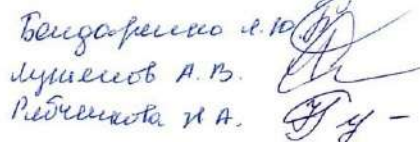 Бондаренко А.Ю.
Лушенов А.В.
Рябченкова Н А.